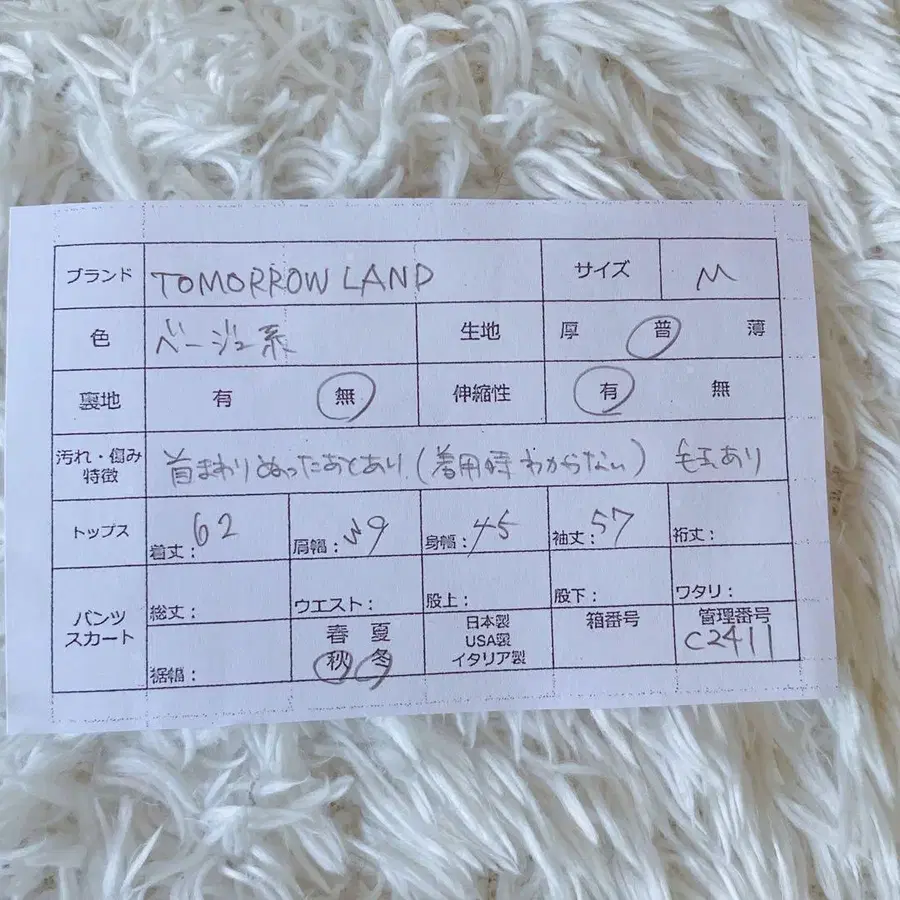 ブランド TOMORROW LAND サイズ M
色 ベージュ系 生地 厚 普 薄
裏地 有 無 伸縮性 有 無
汚れ・傷み
特徴
首まわりぬったあとあり(着用時わからない) 毛玉あり
トップス 着丈:62 肩幅: 身幅:45 袖丈:57 裄丈:
パンツ
スカート
総丈: ウエスト: 股上: 股下: ワタリ:
裾幅:
春 夏
秋 冬
日本製
USA製
イタリア製
箱番号
管理番号
C2411